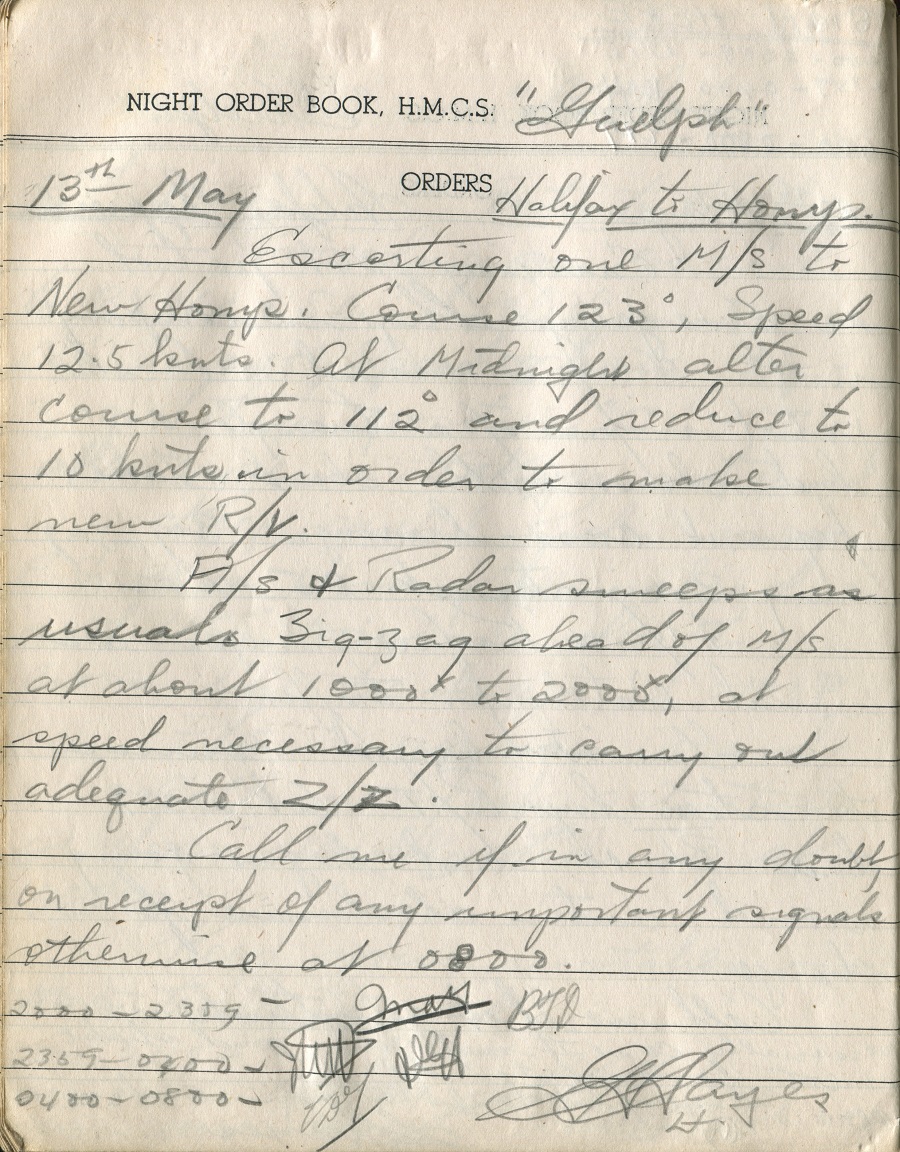 NIGHT ORDER BOOK, H.M.C.S. "Guelph"
13th May ORDERS Halifax to Homp.
Escorting one M/S to
New Homp. Course 123°, Speed
12.5 knts. At Midnight alter
course to 112° and reduce to
10 knts in order to make
new R/V.
A/S & Radar sweeps as
usual. Zig-zag ahead of M/S
at about 1000x to 2000x, at
speed necessary to carry out
adequate Z/Z.
Call me if in any doubt,
on receipt of any important signals
otherwise at 0800.
2000 – 2359 –
2359 – 0400 –
0400 – 0800 –
Hayes
Lt.